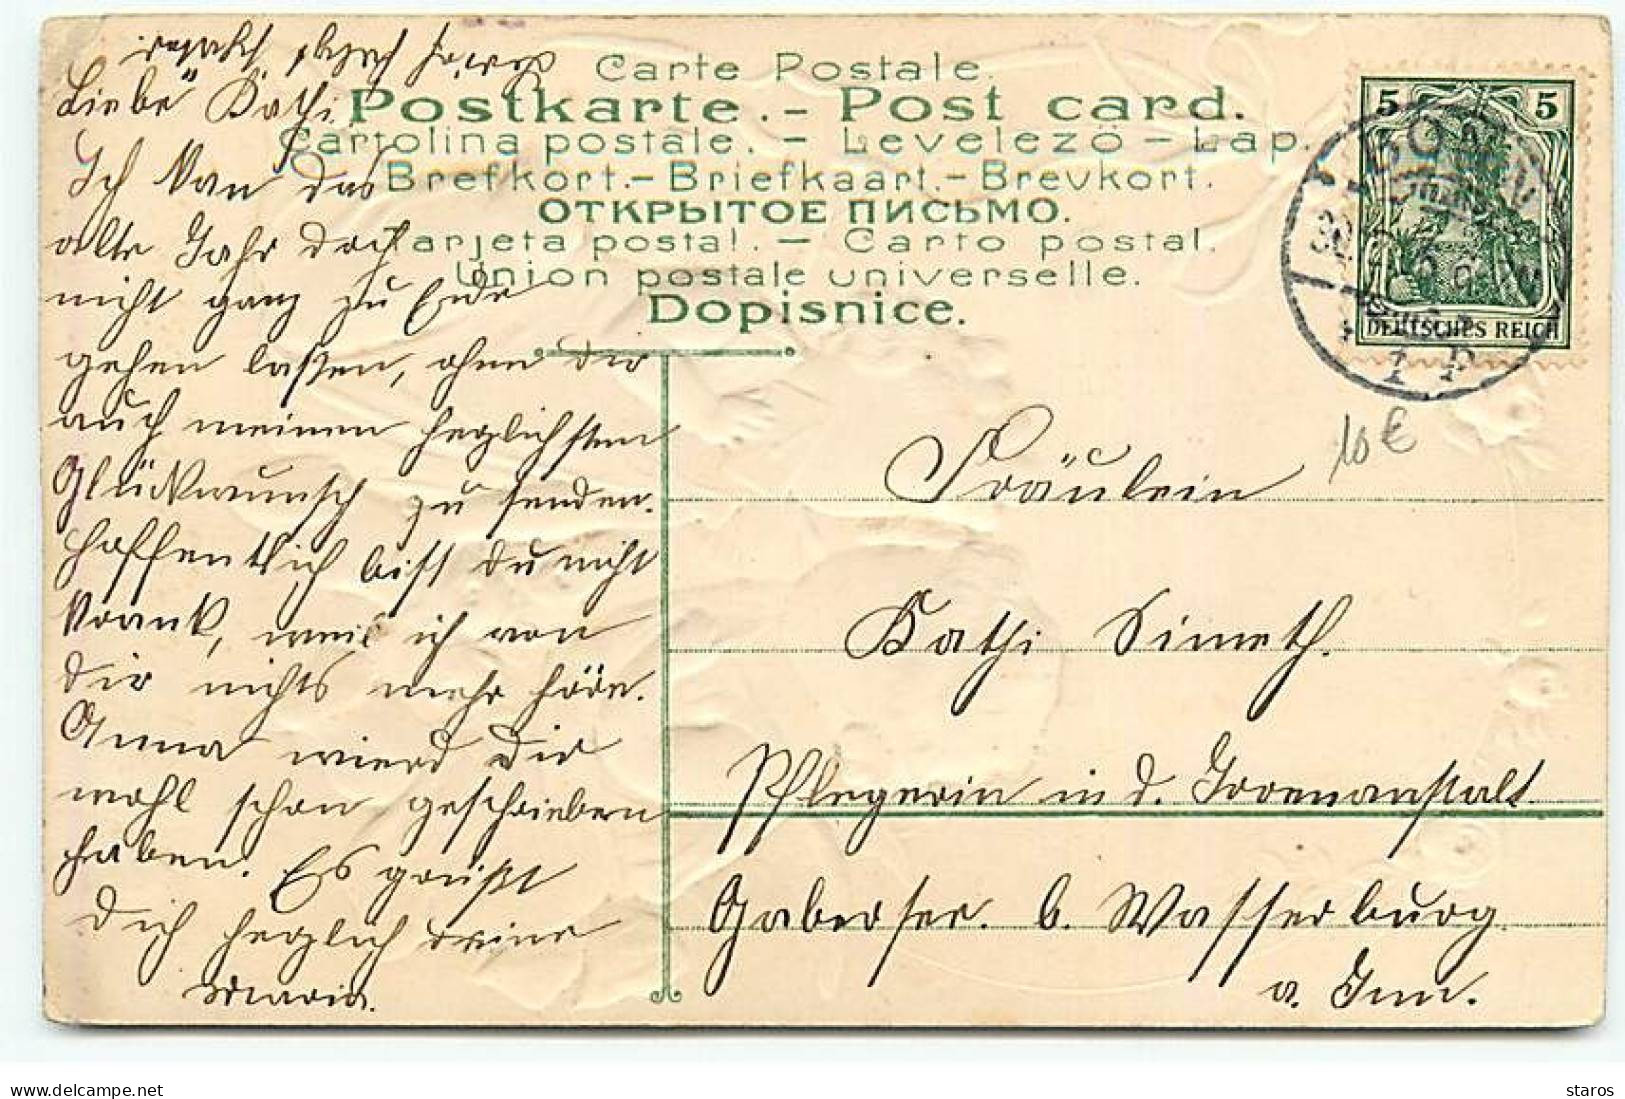 Liebe Kathi
Ich kan das
alte Jahr doch
nicht ganz zu Ende
gehen laßen, ohne dir
auch meinen herzlichsten
Glückwunsch zu senden.
Hoffentlich bist du nicht
krank, weil ich von
dir nichts mehr höre.
Anna wierd dir
wohl schon geschrieben
haben. Es grüßt
dich herzlich deine
Maria.
Carte Postale.
Postkarte. - Post card.
Cartolina postale. - Levelezö - Lap.
Brefkort. - Briefkaart. - Brevkort.
ОТКРЫТОЕ ПИСЬМО.
Tarjeta postal. - Carto postal.
Union postale universelle.
Dopisnice.
5 5
DEUTSCHES REICH
10€
Fräulein
Kathi Simeth.
Pflegerin in d. Irrenanstalt.
Gabersee. b. Wasserburg
a. Inn.
delcampe.net
staros